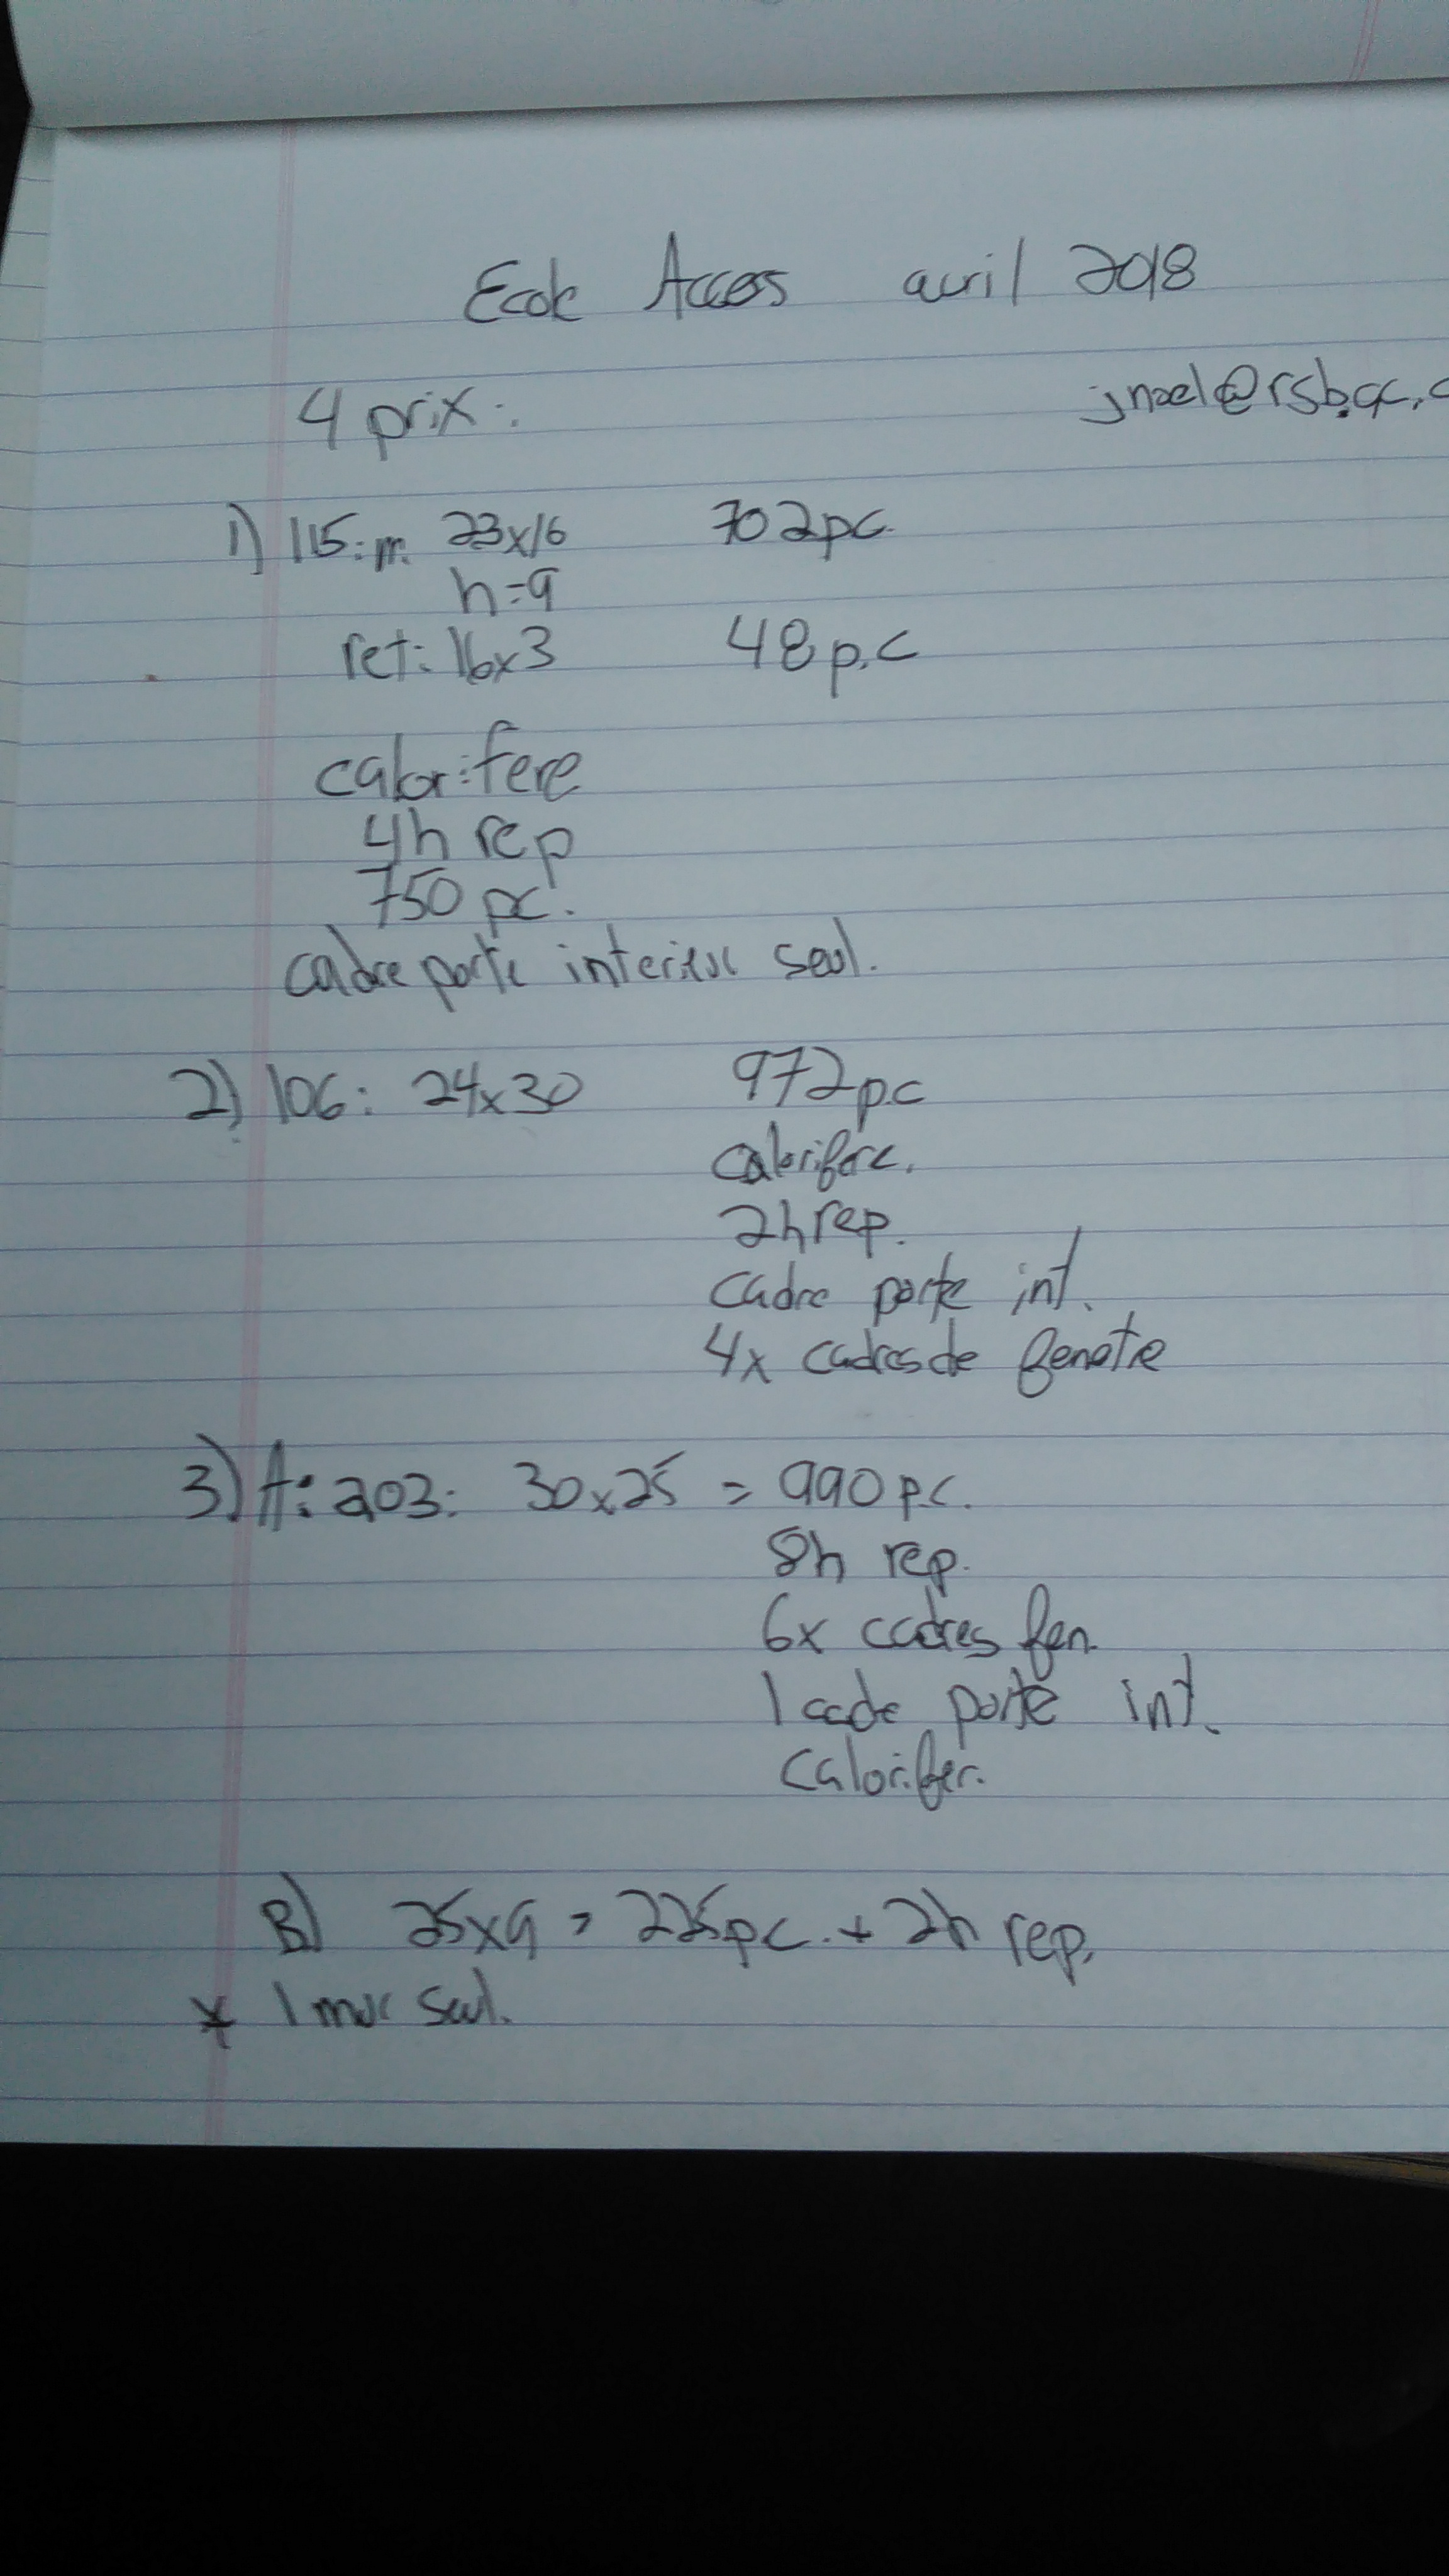 Ecole Acces avril 2018
4 prix:
jnoel@rsb.qc.c
1) 115: m. 23x16 702pc.
h=9
ret: 16x3 48p.c
calorifere
4h rep
750 pc.
cadre porte interieur seul.
2) 106: 24x30 972p.c
calorifere.
2h rep.
cadre porte int.
4x cadres de fenetre
3) A: 203: 30x25 = 990 p.c.
8h rep.
6x cadres fen.
1 cadre porte int.
calorifer.
B) 25x9 = 225pc. + 2h rep.
* 1 mur seul.